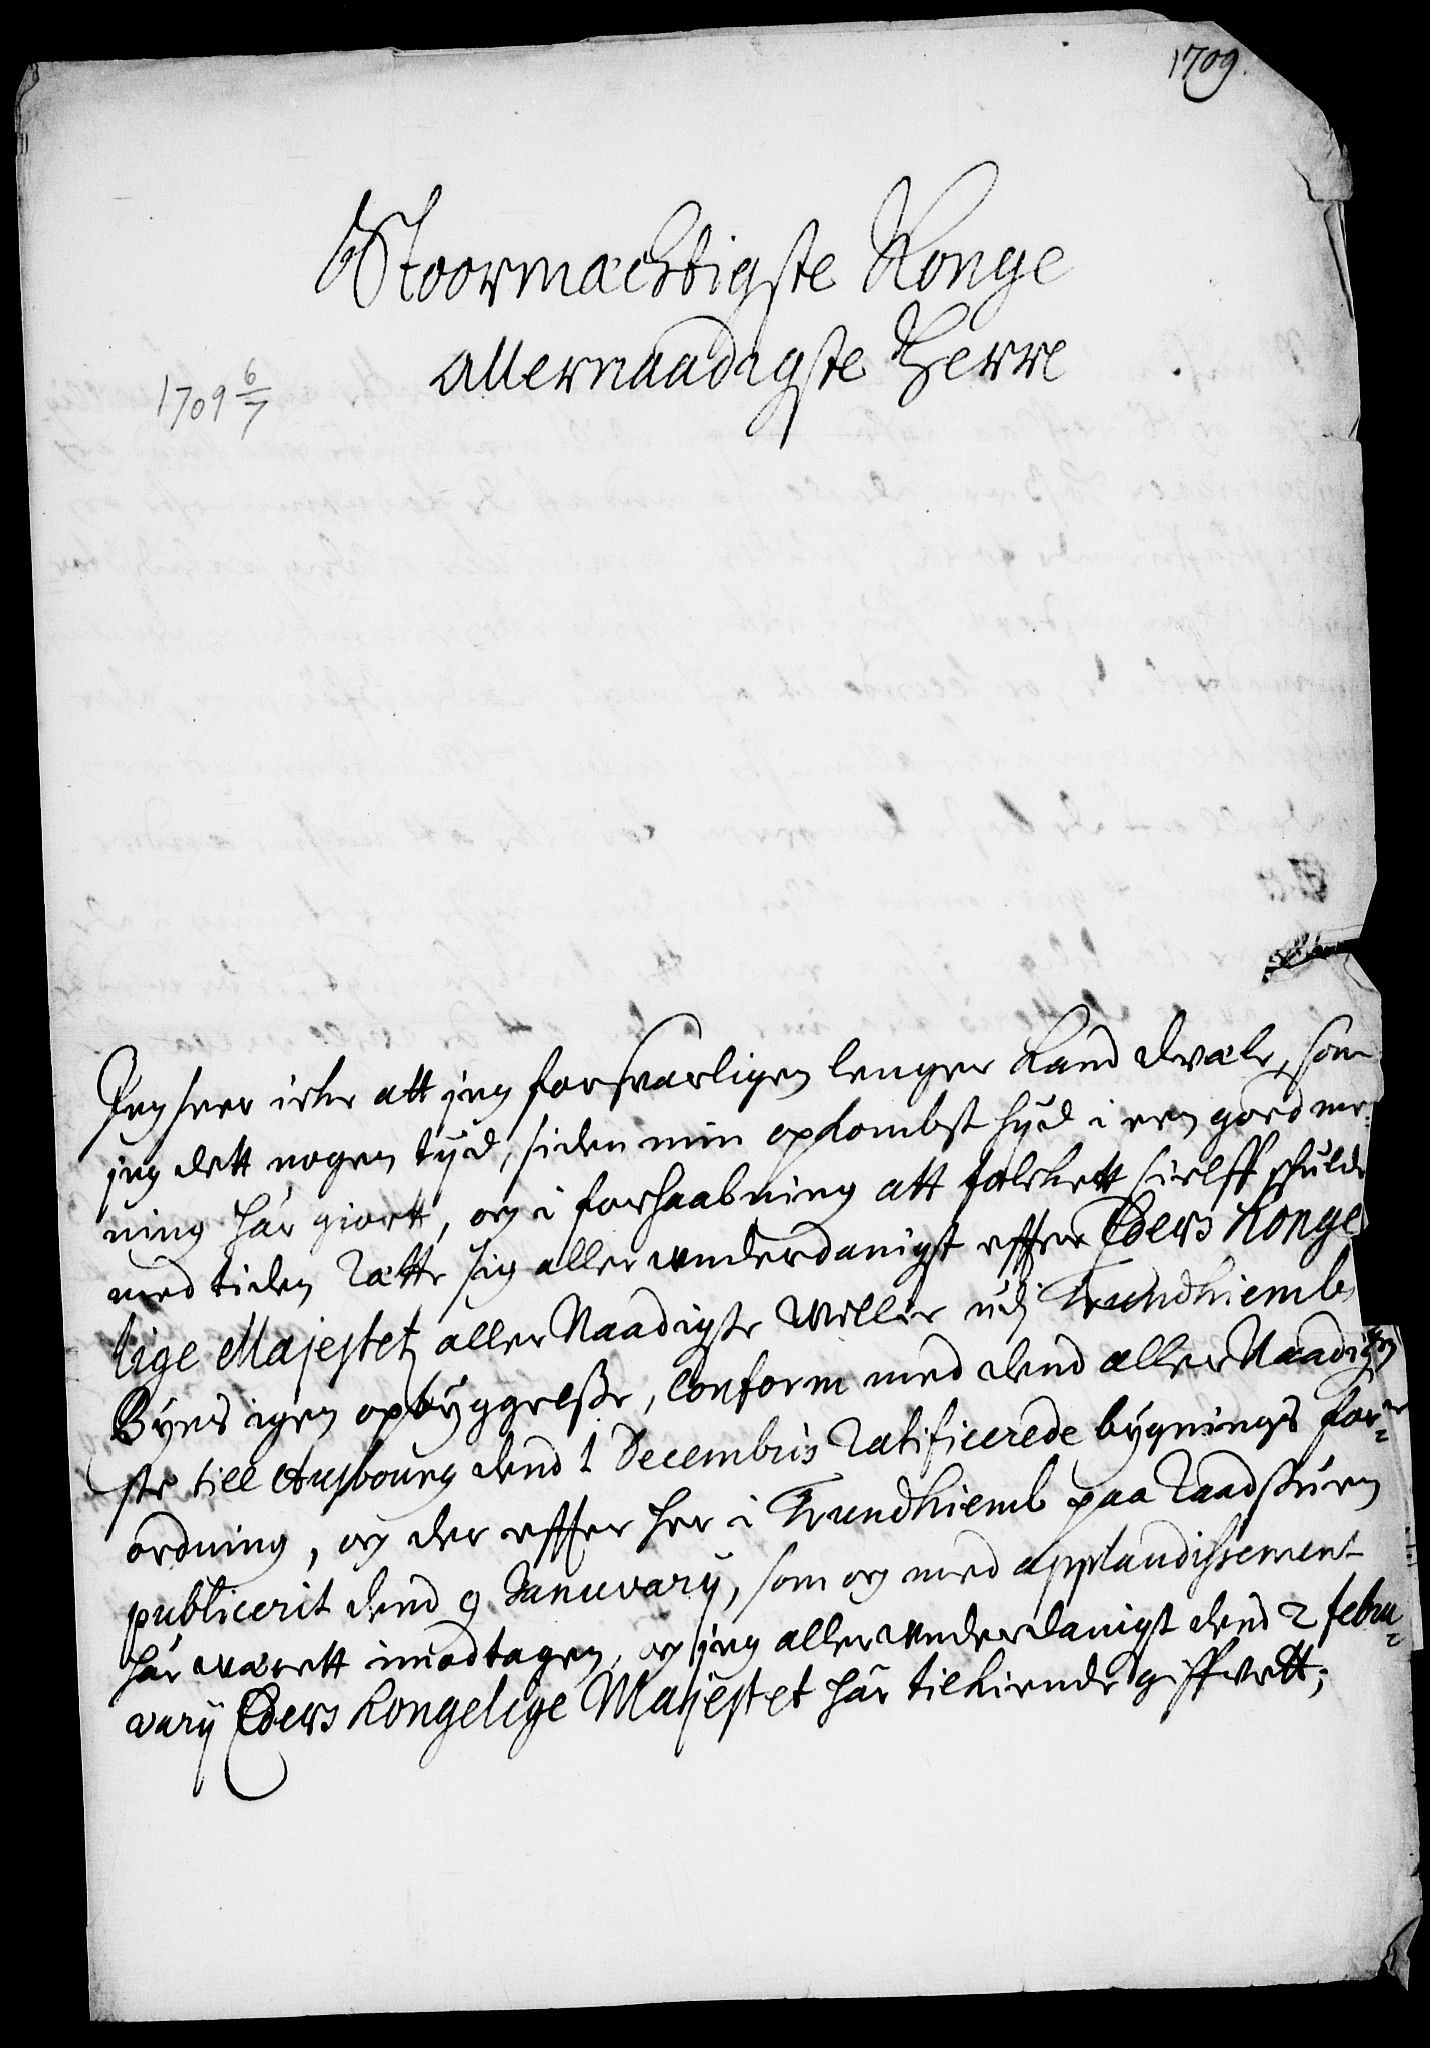 1709.
Stoormachtigste Konge
Allernaadigste Herre
1709 6/7
Jeg seer icke att jeg forsvarligen lenger kand dvæle, som
jeg dett nogen tijd, siden min opkombst hijd i een goed me¬
ning har giortt, og i forhaabning att folckett sielff skulde
med tiden rætte sig allerunderdanigst effter Eders Konge
lige Majestetz aller Naadigste Willie udj Trundhiembs
Byes igen opbyggelsse, Conform med dend aller Naadig
ste till Ausbourg dend 1 Decembris Ratificerede bygnings For¬
ordning, og der effter her i Trundhiemb paa Raadstuen
publicerit dend 9 Januvarij, som og med applaudissement
har værett imodtagen, og jeg allerunderdanigst dend 2 febru¬
varij Eders Kongelige Majestet har tilkiende giffvett;